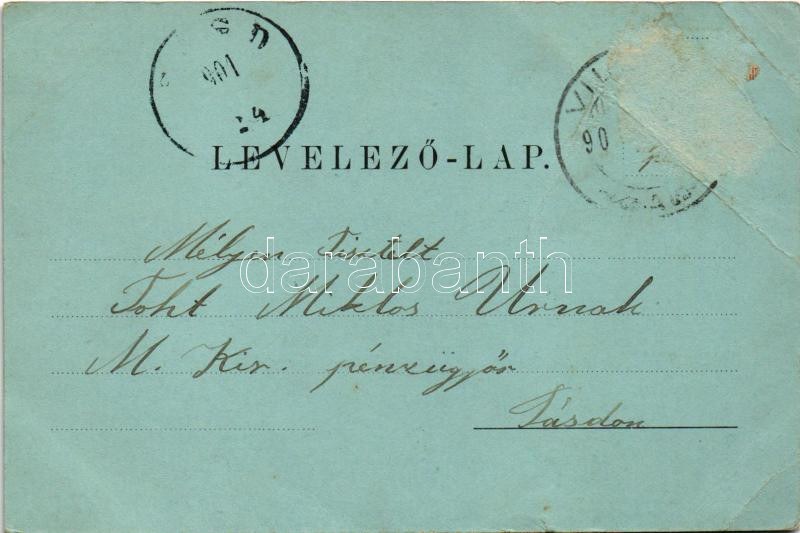 901
24
VIL
90
LEVELEZŐ-LAP.
Mélyen Tisztelt
darabanth
Toht Miklos Urnak
M. Kir. pénzügyőr
Sásdon